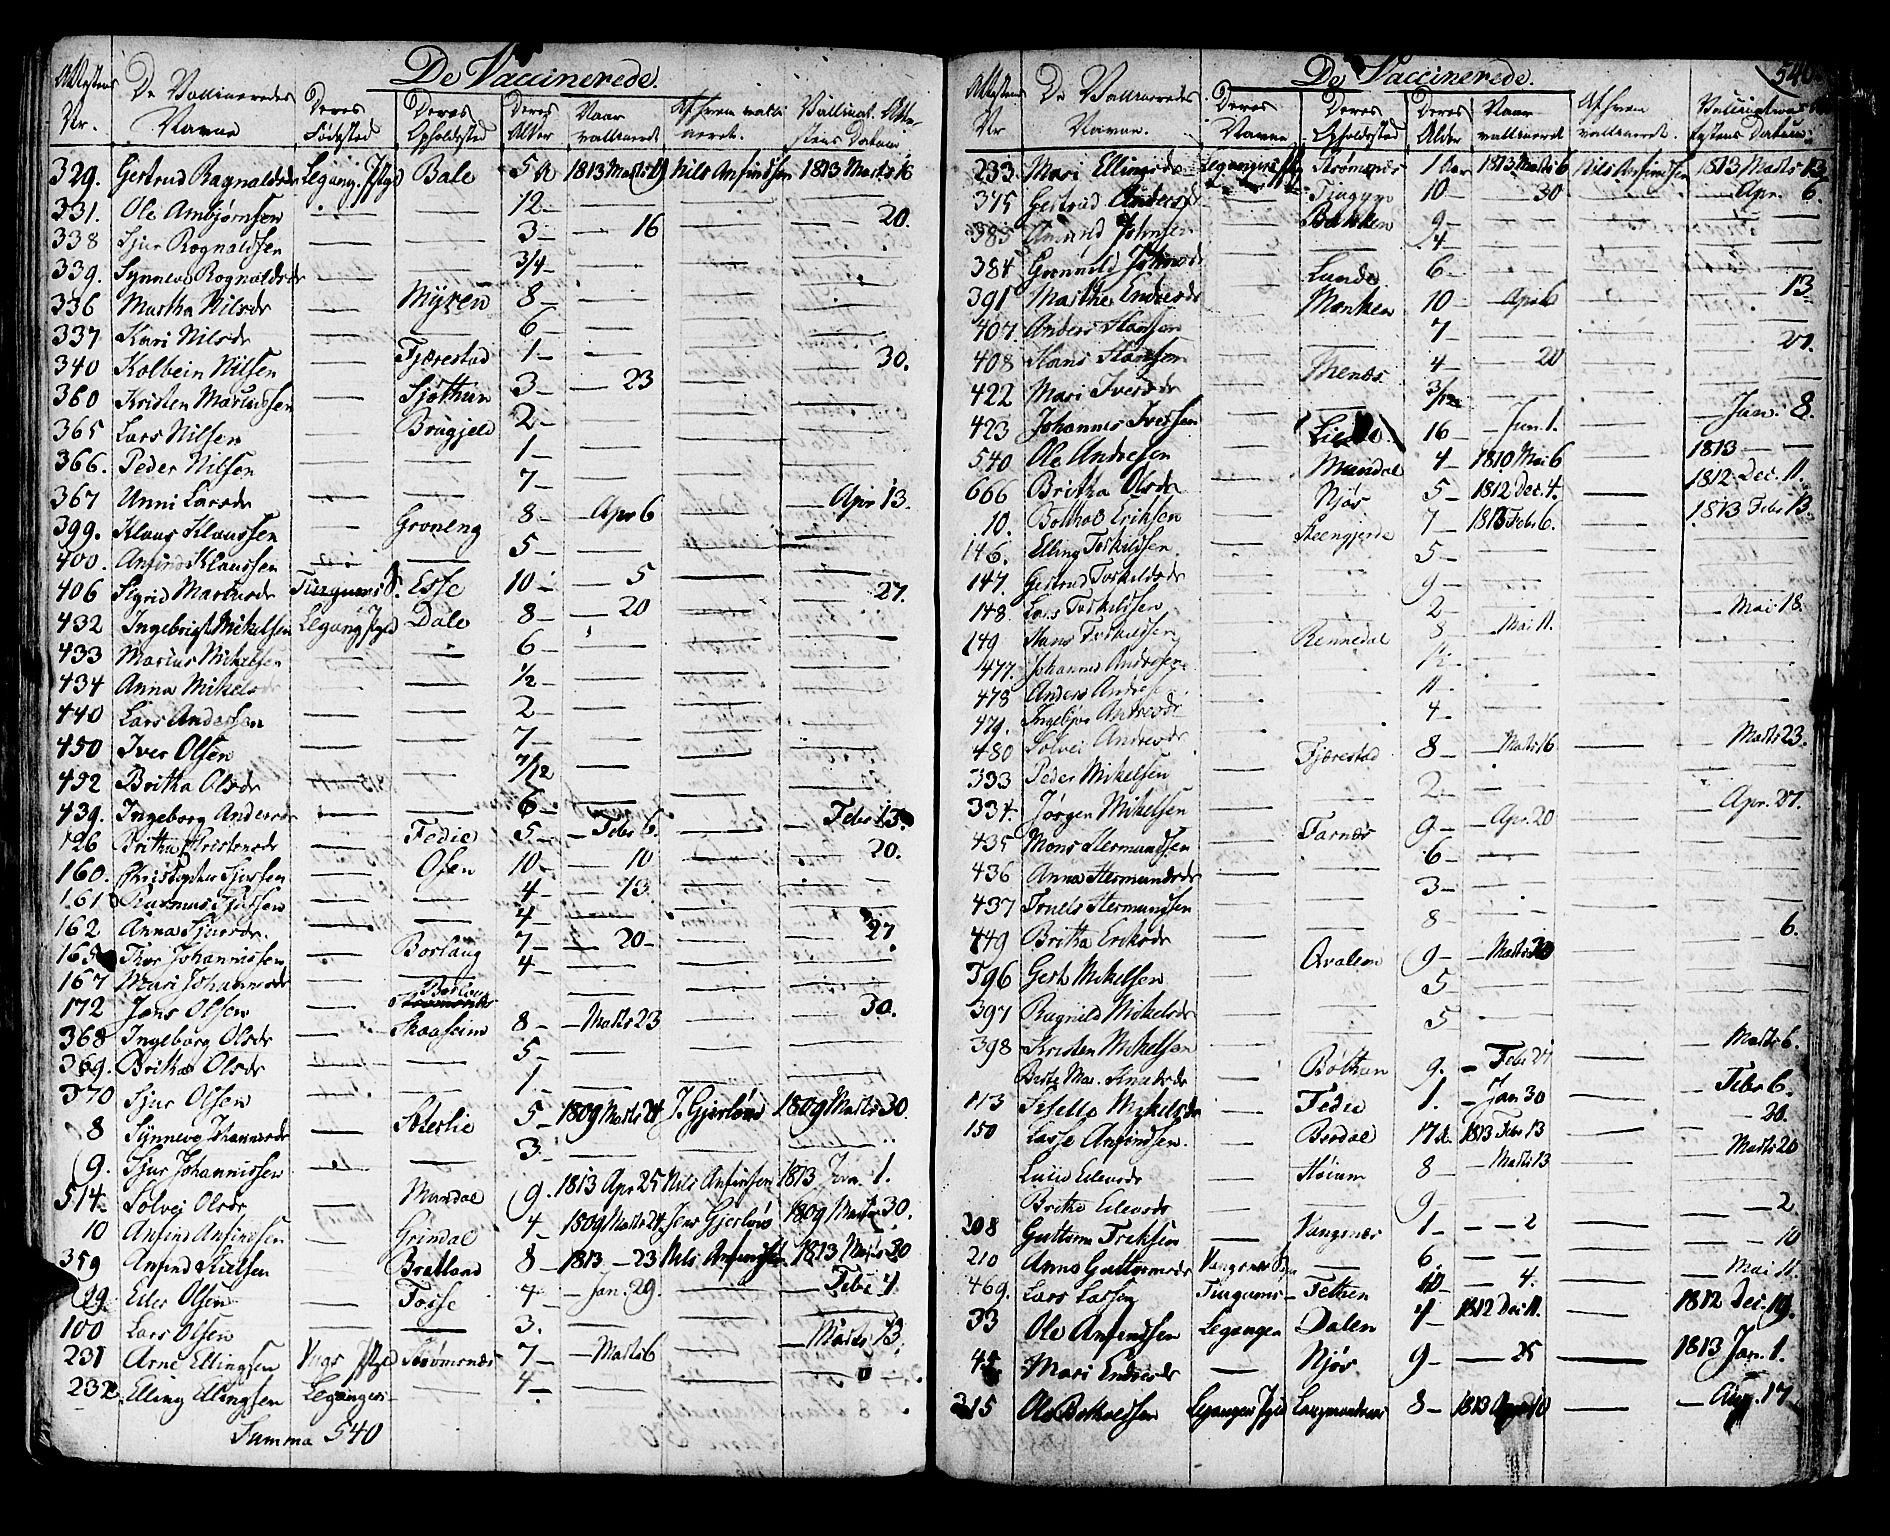 De Vaccinerede.
Attestens Nr. De Vaccineredes Navne Deres Fødested Deres Opholdsted Deres Alder Naar vaccineret Af hvem vacci neret. Vaccinat. Attes tens Datum
329. Gertrud Ragnaldsdr Legang. Pgld Bale 5 A 1813 Marts 9 Nils Anfindsen 1813 Marts 16
331. Ole Ambjørnsen — — 12 — — — —
338 Sjur Rognaldsen — — 3 — — 16 — — 20.
339. Synneva Rognaldsdr — — 3/4 — — — —
336 Martha Nilsdr — Myren 8 — — — —
337 Kari Nilsdr — — 6 — — — —
340 Kolbein Nilsen — Fjærestad 1 — — — —
360 Kristen Mariussen — Sjøthun 3 — — 23 — — 30.
365 Lars Nilsen — Brugjeld 2 — — — —
366. Peder Nilsen — — 1 — — — —
367 Unni Larsdr — — 7 — — — —
399. Klaus Klaussen — Groneng 8 — — Apr 6 — — Apr 13.
400. Anfind Klaussen — — 5 — — — —
406 Sigrid Mariusdr Tiugums S. Esse 10 — — 5 — —
432 Ingebrigt Mikelsen Legang Pgld Dale 8 — — 20 — — 27.
433 Marius Mikelsen — — 6 — — — —
434 Anna Mikelsdr — — 1/2 — — — —
440 Lars Andersen — — 2 — — — —
450 Iver Olsen — — 7 — — — —
452 Britha Olsdr — — 7/12 — — — —
439. Ingeborg Andersdr — — 6 — — — —
126 Britha Kristensdr — Fedie 5 — — Febr 6. — — Febr 13.
160. Christopher Sjursen — Osen 10 — — 10 — — 20.
161 Rasmus Sjursen — — 4 — — 13. — —
162 Anna Sjursdr. — — 4 — — — —
165 Thor Johannissen — Borlaug 7 — — 20 — — — 27.
167 Mari Johannesdr — — 4 — — — —
172 Jens Olsen — Borlaug — — — —
368 Ingeborg Olsdr — Skaaheim 8 — — Marts 23 — — 30.
369. Britha Olsdr — — 5 — — — —
370 Sjur Olsen — — 1. — — — —
8 Synneva Johannesdr — Sterlie 5 — 1809 Marts 24 J. Gjerløw 1809 Marts 30.
9. Sjur Johannissen — — 3 — — — —
514. Solvei Olsdr — Mundal 9. 1813 Apr 25 Nils Anfinsen 1813 Jun. 1.
10 Anfind Anfindsen — Grindal 4 — 1809 Marts 24. Jens Gjerløw 1809 Marts 30.
359 Anfind Nielsen — Bratland 8 — 1813 — 23 Nils Anfindsen 1813 Marts 30
99. Eiler Olsen — Fosse 4 — — Jan. 29. — — Febr 4
100 Lars Olsen — — 3. — — — —
231 Arne Ellingsen Vags Pgld Strømsnæs 7 — — Marts 6 — — Marts 13.
232. Elling Ellingsen Leganger — — 4 — — — —
Summa 540
De Vaccinerede. 540
Attestens Nr De Vaccineredes Navne. Deres Navne Deres Opholdsted Deres Alder Naar vaccineret Af hvem vaccineret. Datum
233. Mari Ellingsdr Legangers Pgld Strømsnæs 1 Aar 1813 Marts 6 Nils Anfindsen 1813 Marts 13
375 Gertrud Andersdr — Tiugum 10 — 30 — — Apr. 6.
383 Amund Johnsen — Bakken 9 — — — —
384 Gunnild Johnsdr — — 4 — — — —
391 Marthe Endresdr — Lunde 6 — — — —
407. Anders Hansen — Menken 10 — — Apr 6 — — 13.
408 Hans Hansen — — 7 — — — —
422 Mari Iversdr — Menæs 4 — — 20 — — 27.
423 Johannes Iversen — — 3/12 — — — —
540 Ole Andresen — Lie 16 — — Jun. 1. — — Jun. 8.
666 Britha Olsdr — Mundal 4 — 1810 Mai 6 — 1813 — —
10. Botholf Eriksen — Njøs 5 — 1812 Dec. 4. — 1812 Dec. 11.
146. Elling Torkildsen — Steengjerde 7 — 1813 Febr 6. — 1813 Febr 13.
147. Gertrud Torkildsdr — — 5 — — — —
148. Lars Torkildsen — — 9 — — — —
149 Hans Torkildsen — — 2 — — — —
477. Johannes Andresen — Rennedal 8 — Mai 11. — — Mai 18.
478 Anders Andresen — — — — —
479. Ingebjør Andresdr — — 11 — — — —
480 Solvei Andresdr — — 4 — — — —
333 Peder Mikelsen — Fjærestad 8 — — Marts 16 — — Marts 23.
334. Jørgen Mikelsen — — 2 — — — —
435 Mons Hermundsen — Farnæs 9 — — Apr. 20 — — Apr. 27.
436 Anna Hermundsdr — — 6 — — — —
437 Truels Hermundsen — — 3 — — — —
449 Britha Eriksdr — — 8 — — — —
396 Gert Mikelsen — Qvalem 9 — — Marts 30 — — 6.
397 Ragnild Mikelsdr — — 5 — — —
398 Kristen Mikelsen — — 5 — — —
Birte Mar. Knudsdr — Bothun 9. — Febr 27 — — Marts 6.
113 Sisella Mikelsdr — Fedie 1. — Jan 30 — — Febr 6.
150 Lasse Anfindsen. — Berdal 17 — 1813 Febr 13 — — 20.
Lucie Eilersdr — Høium 8 — — Marts 13 — — Marts 20
Britha Eilersdr — — 9 — — — —
208 Guttorm Eriksen — Vangsnæs 1 — — 2 — — 2.
210 Anna Guttormsdr Vangsnæs — 6. — — — — 10
469. Lars Larsen Tiugums — Fethen 10 — — 4. — — Mai 11.
33 Ole Anfindsen Leganger Dalen 4 — 1812 Dec 11. — 1812 Dec. 19.
45 Mari Endresdr — Njøs 9 — — 25 — 1813 Jan. 1.
315 Ole Botholfsen Leganger Pgld Langmandsnæs 8 — 1813 Apr 10 — — Aug. 17.